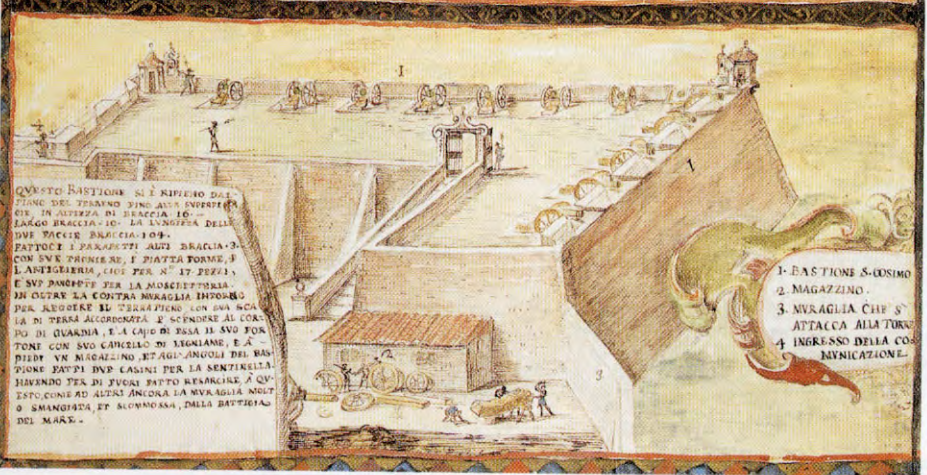 1
QVESTO BASTIONE SI È RIPIENO DAL
PIANO DEL TERRENO FINO ALLA SVPERFI
CIE, IN ALTEZZA DI BRACCIA 16
LARGO BRACCIA 10 LA LVNGEZZA DELLE
DVE FACCIE BRACCIA 104.
FATTOCI I PARAPETTI ALTI BRACCIA 3
CON SVE TRONIERE, E PIATTA FORME, P
L'ANTIGLIERIA, CIOE PER Nº 17 PEZZI,
E SVE PANCHETTE PER LA MOSCHETTERIA.
IN OLTRE LA CONTRA MVRAGLIA INTORNO
PER REGGERE IL TERRAPIENO CON SVA SCA
LA DI TERRA ACCORDONATA P SCENDERE AL COR
PO DI GVARDIA, E A CAPO DI ESSA IL SVO POR
TONE CON SVO CANCELLO DI LEGNIAME, E À
PIEDI VN MAGAZZINO, ET AGL'ANGOLI DEL BAS
TIONE FATTI DVE CASINI PER LA SENTINELLA.
HAVENDO PER DI FVORI FATTO RESARCIRE, À QV
ESTO, COME AD ALTRI ANCORA LA MVRAGLIA MOLT
O SMANGIATA, ET SCOMMOSSA, DALLA BATTIGIA
DEL MARE.
1
2
3
1. BASTIONE S. COSIMO
2. MAGAZZINO.
3. MVRAGLIA CHE S'
ATTACCA ALLA TORRE
4 INGRESSO DELLA CO
MVNICAZIONE